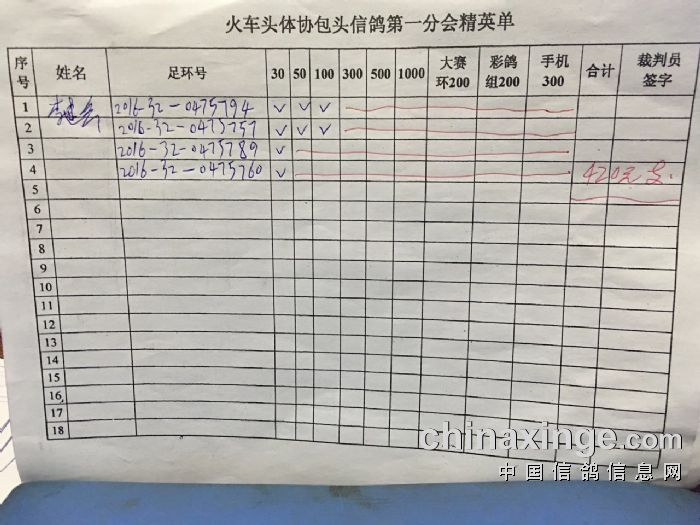 火车头体协包头信鸽第一分会精英单
序号 姓名 足环号 30 50 100 300 500 1000 大赛环200 彩鸽组200 手机300 合计 裁判员签字
1 2016-32-0475794 ✓ ✓ ✓
2 2016-32-0475757 ✓ ✓ ✓
3 2016-32-0475789 ✓
4 2016-32-0475760 ✓ 420元
5
6
7
8
9
10
11
12
13
14
15
16
17
18
chinaxinge.com
中国信鸽信息网